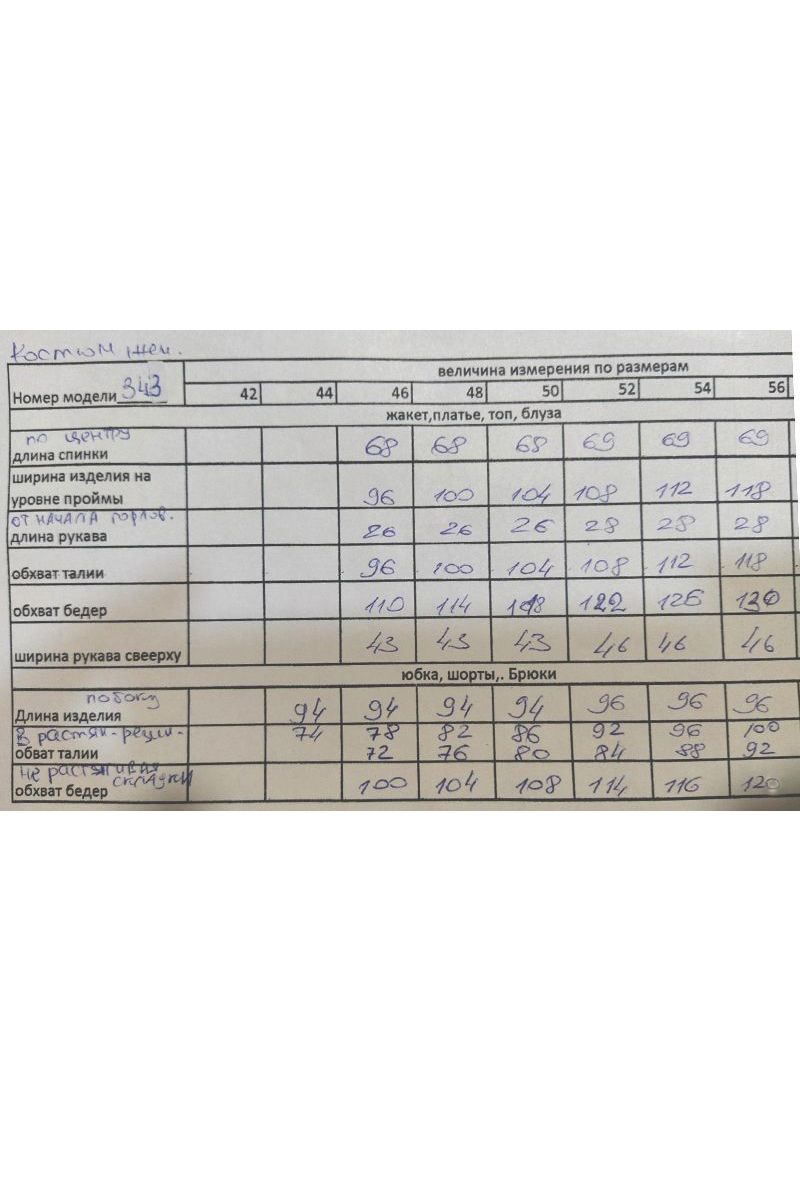 Костюм жен.
величина измерения по размерам
Номер модели 343 42 44 46 48 50 52 54 56
жакет,платье, топ, блуза
по центру
длина спинки 68 68 68 69 69 69
ширина изделия на
уровне проймы 96 100 104 108 112 118
от начала горлов.
длина рукава 26 26 26 28 28 28
обхват талии 96 100 104 108 112 118
обхват бедер 110 114 118 122 126 130
ширина рукава свеерху 43 43 43 46 46 46
юбка, шорты,. Брюки
по боку
Длина изделия 94 94 94 94 96 96 96
В растян-реции- 74 78 82 86 92 96 100
обват талии 72 76 80 84 88 92
не растягивая
складки
обхват бедер 100 104 108 114 116 120